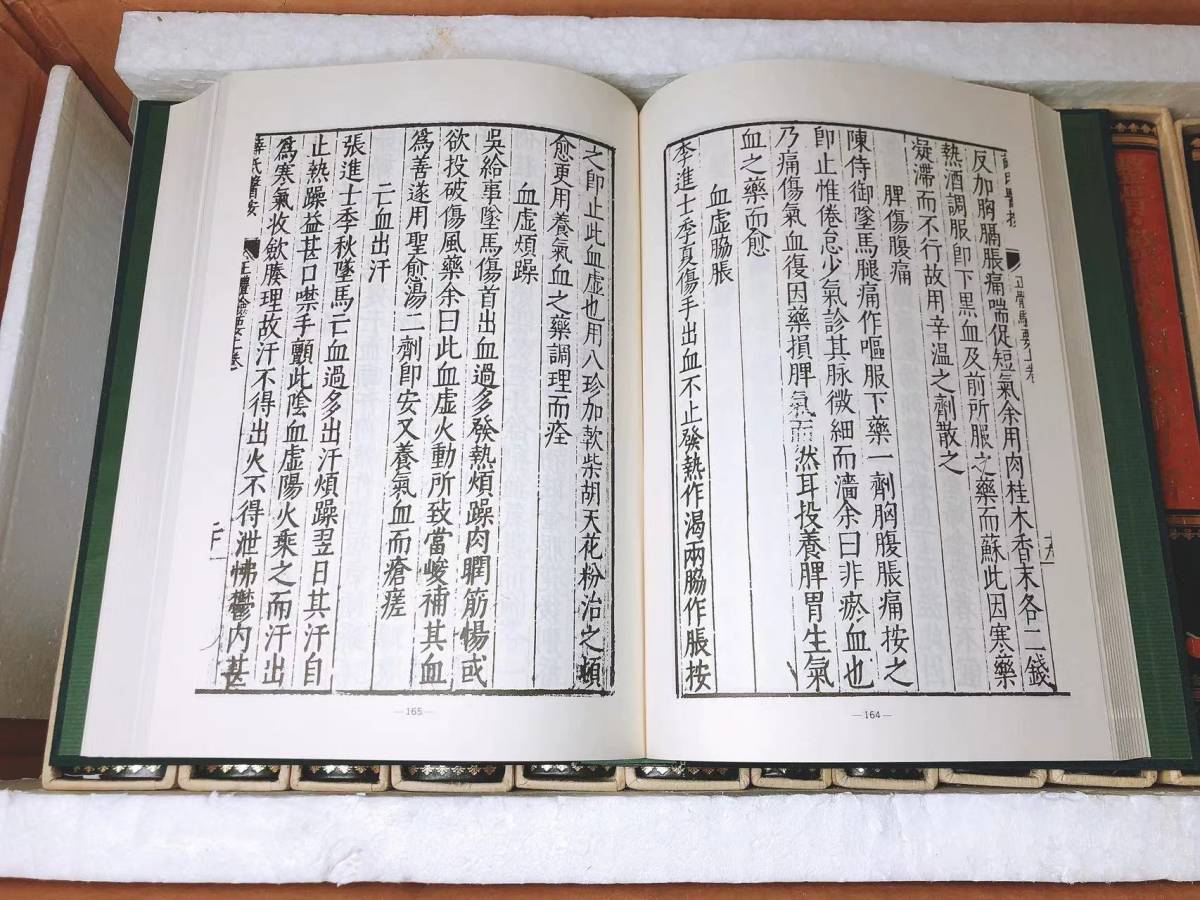 反加胸膈脹痛喘促短氣余用肉桂木香末各二錢
熱酒調服即下黑血及前所服之藥而蘇此因寒藥
凝滯而不行故用辛溫之劑散之
脾傷腹痛
陳侍御墜馬腿痛作嘔服下藥一劑胸腹脹痛按之
即止惟倦怠少氣診其脉微細而濇余曰非瘀血也
乃痛傷氣血復因藥損脾氣而然耳投養脾胃生氣
血之藥而愈
血虛脇脹
李進士季夏傷手出血不止發熱作渴兩脇作脹按
—164—
之即止此血虛也用八珍加軟柴胡天花粉治之頓
愈更用養氣血之藥調理而痊
血虛煩躁
吳給事墜馬傷首出血過多發熱煩躁肉瞤筋惕或
欲投破傷風藥余曰此血虛火動所致當峻補其血
爲善遂用聖愈湯二劑即安又養氣血而瘡瘥
亡血出汗
張進士季秋墜馬亡血過多出汗煩躁翌日其汗自
止熱躁益甚口噤手顫此陰血虛陽火乘之而汗出
爲寒氣收斂腠理故汗不得出火不得泄怫鬱内甚
薛氏醫按
正體類要上卷
—165—